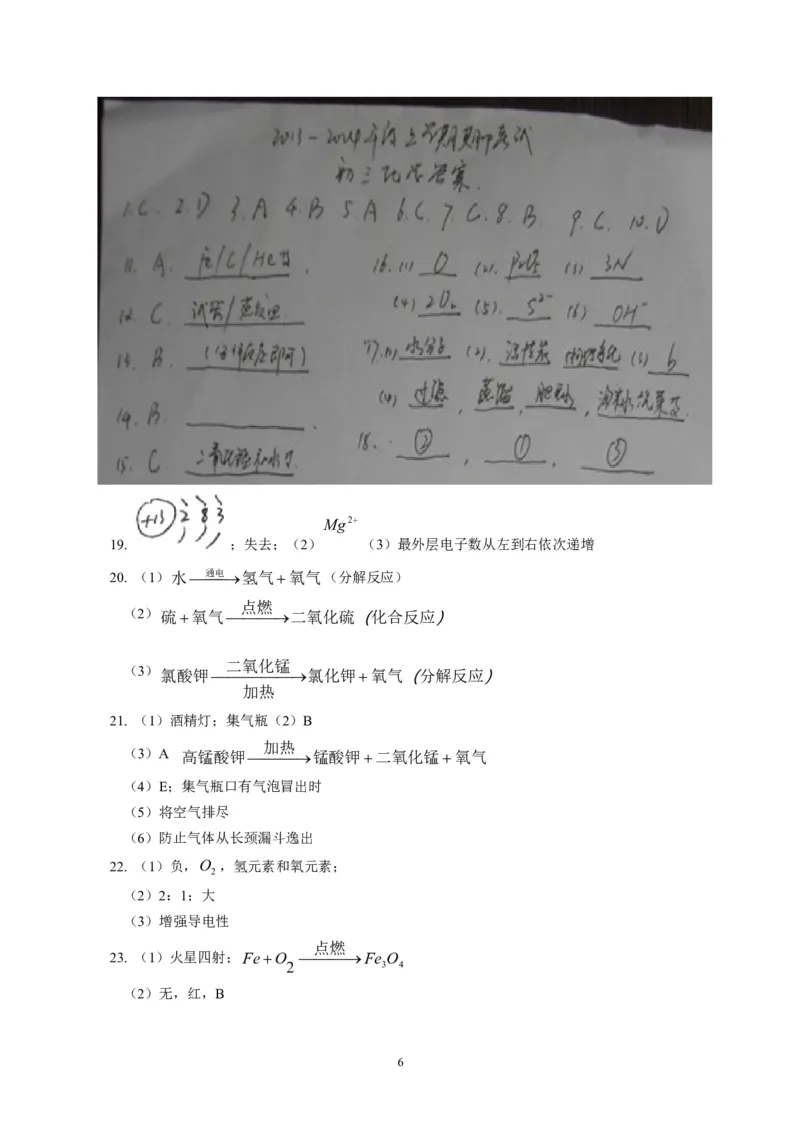 2013－2014年度上学期期中考试
初三化学答案.
1.C. 2.D 3.A 4.B 5.A 6.C. 7.C. 8.B. 9.C. 10.D
11. A. /C/He 16.(1) O (2). (3) 3N
12. C. 试管/ (4) 2O₂ (5). S²⁻ (6) OH⁻
13. B. 17.(1) 水分子 (2). 活性炭 (3) b
14. B. (4) 过滤, 蒸馏, 肥皂水,
15. C. 二氧化锰和水 18. ②, ①, ③
19. +13 2 8 3 ;失去;(2) Mg²⁺ (3)最外层电子数从左到右依次递增
20. (1)水 通电→ 氢气+氧气(分解反应)
(2) 硫+氧气 点燃→ 二氧化硫 (化合反应)
(3) 氯酸钾 二氧化锰 加热→ 氯化钾+氧气 (分解反应)
21. (1)酒精灯;集气瓶(2)B
(3)A 高锰酸钾 加热→ 锰酸钾+二氧化锰+氧气
(4)E;集气瓶口有气泡冒出时
(5)将空气排尽
(6)防止气体从长颈漏斗逸出
22. (1)负,O₂,氢元素和氧元素;
(2)2:1;大
(3)增强导电性
23. (1)火星四射;Fe+O₂ 点燃→ Fe₃O₄
(2)无,红,B
6